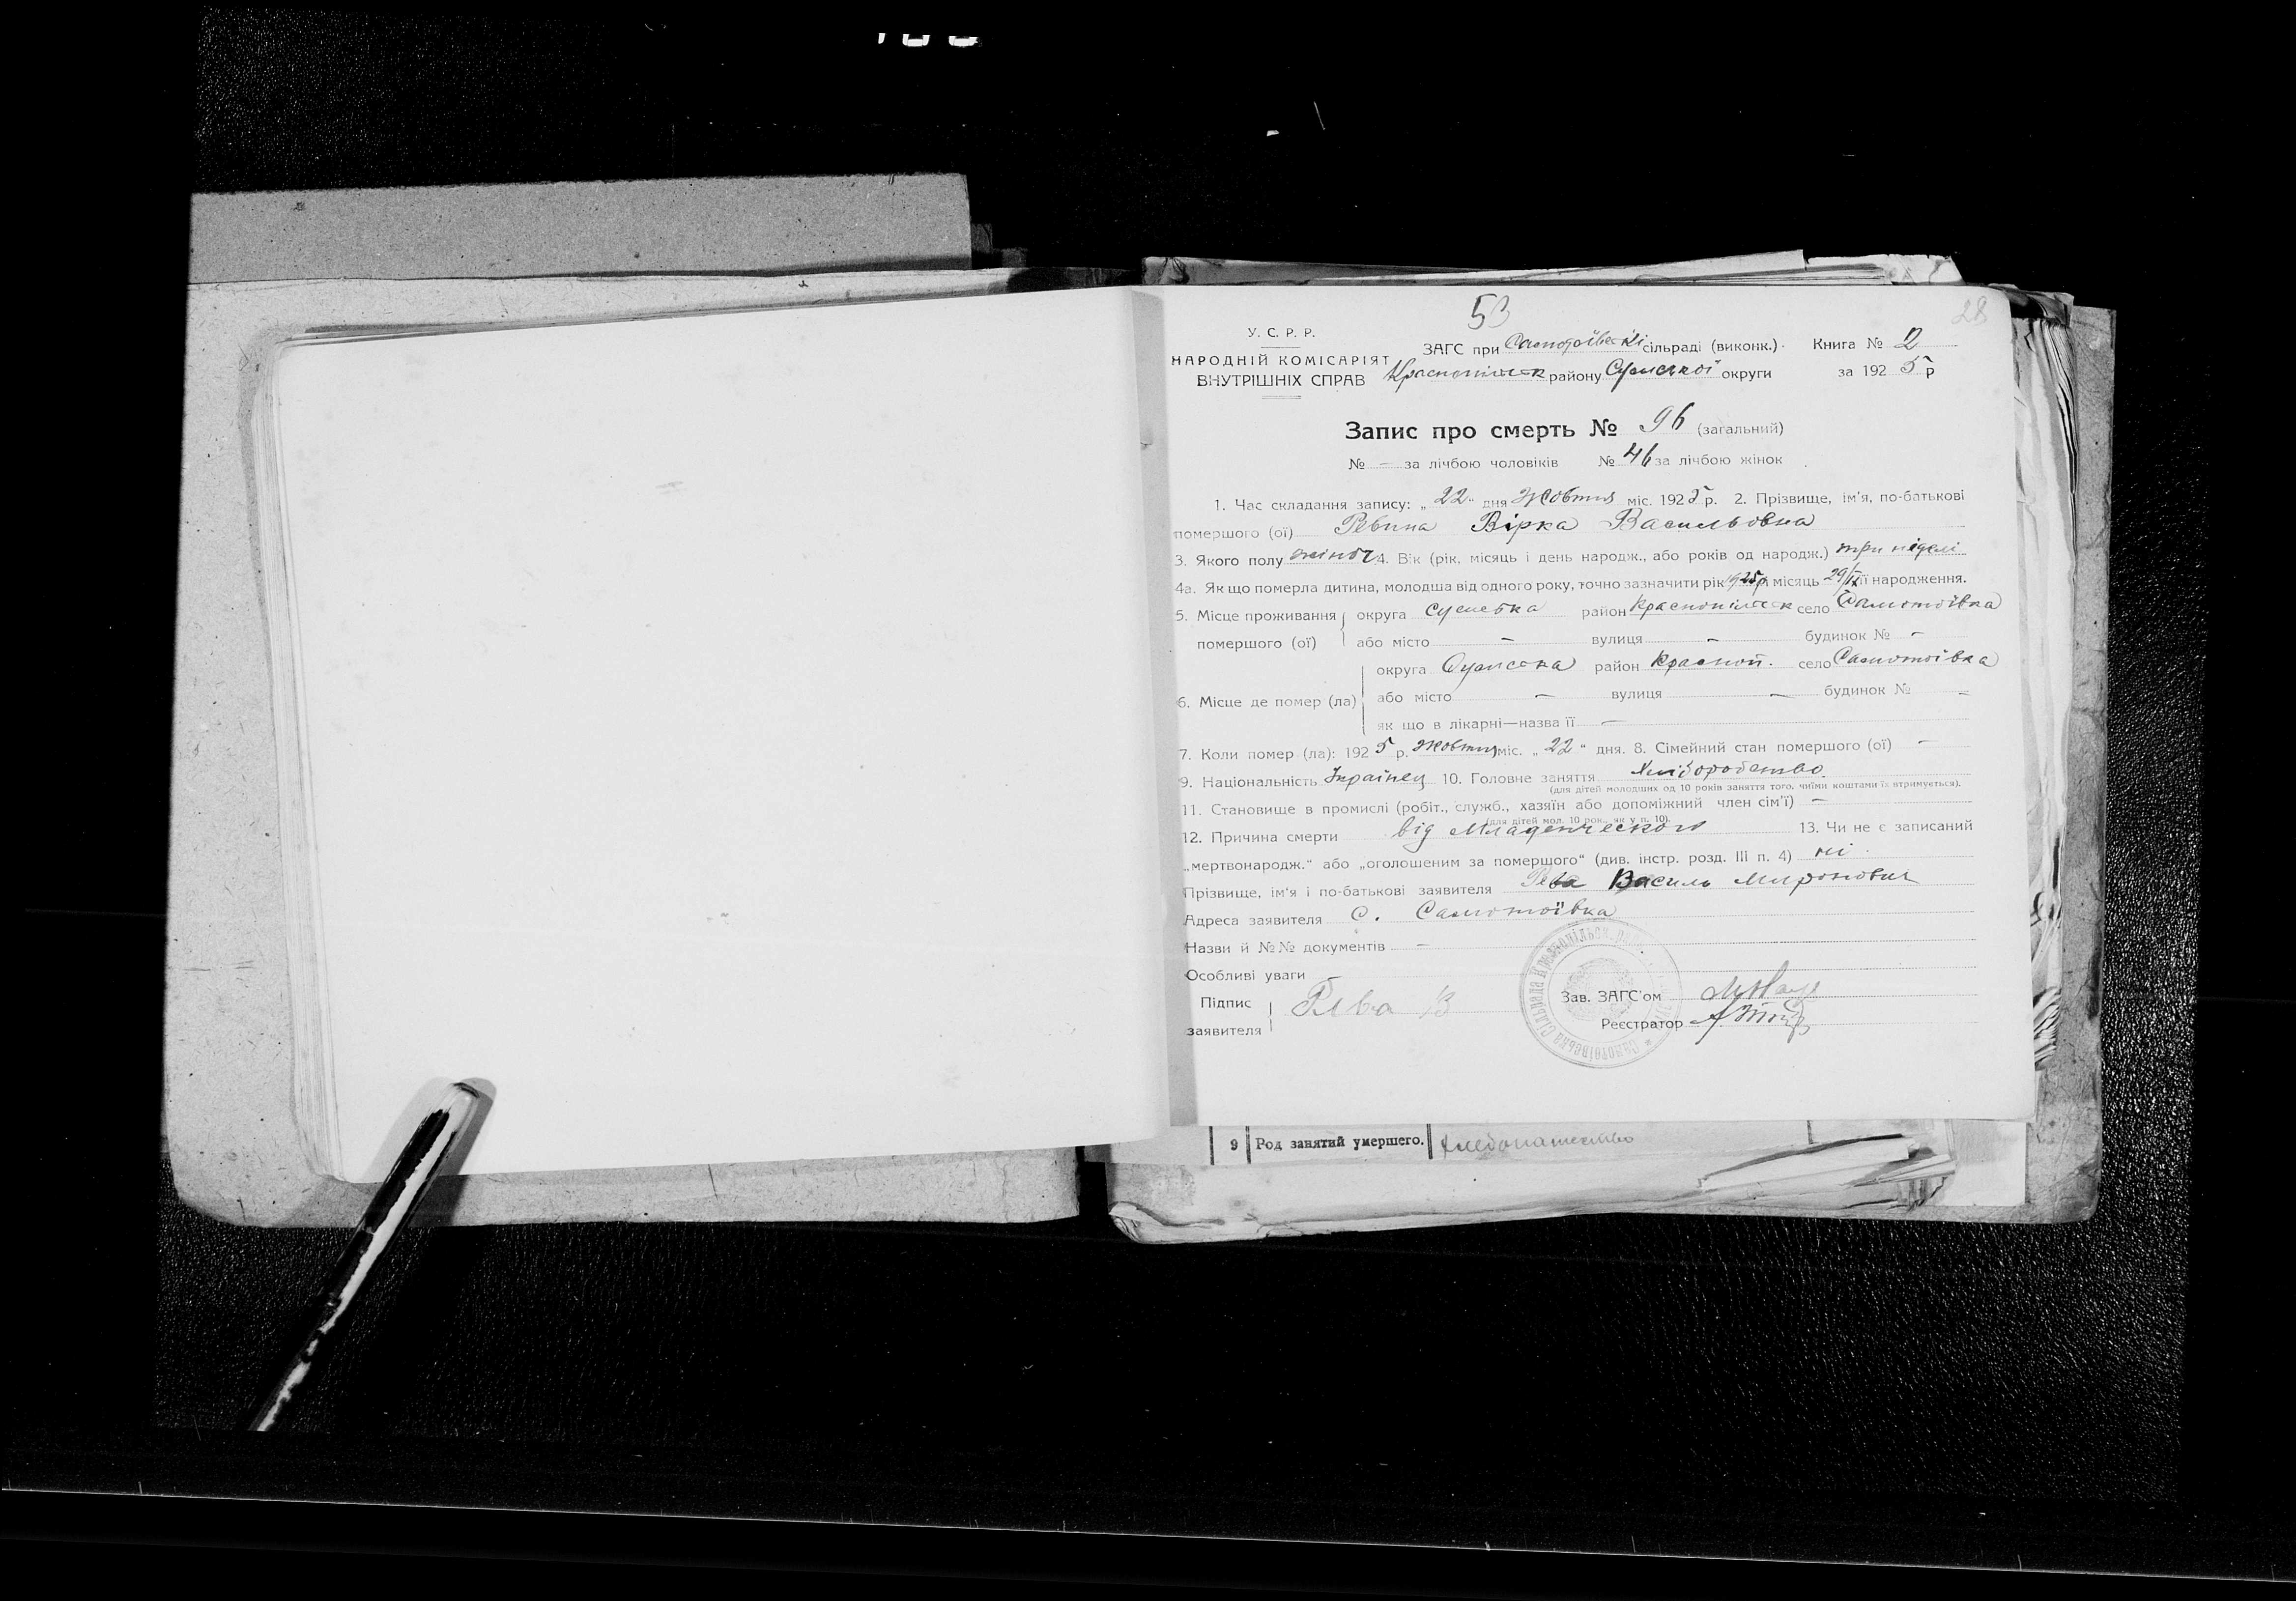 53
28
У. С. Р. Р.
НАРОДНІЙ КОМІСАРІЯТ
ВНУТРІШНІХ СПРАВ
ЗАГС при Самотоївській сільраді (виконк.). Книга № 2
Краснопільск району Сумської округи за 1925 р
Запис про смерть № 96 (загальний)
№ — за лічбою чоловіків № 46 за лічбою жінок
1. Час складання запису: „22“ дня Жовтня міс. 1925 р. 2. Прізвище, ім'я, по-батькові
помершого (ої) Ревина Вірка Васильовна
3. Якого полу жіноч 4. Вік (рік, місяць і день народж., або років од народж.) три неделі
4а. Як що померла дитина, молодша від одного року, точно зазначити рік 1925 р місяць 29/IX її народження.
5. Місце проживання округа Сумська район Краснопільск село Самотоївка
помершого (ої) або місто — вулиця — будинок № —
округа Сумська район Красноп. село Самотоївка
6. Місце де помер (ла) або місто — вулиця — будинок № —
як що в лікарні—назва її —
7. Коли помер (ла): 1925 р. Жовтня міс. „22“ дня. 8. Сімейний стан помершого (ої) —
9. Національність Українец 10. Головне заняття Хліборобство
(для дітей молодших од 10 років заняття того, чиїми коштами їх втримується).
11. Становище в промислі (робіт., служб., хазяїн або допоміжний член сім'ї) —
(для дітей мол. 10 рок., як у п. 10).
12. Причина смерти від Младенческого 13. Чи не є записаний
„мертвонародж.“ або „оголошеним за помершого“ (див. інстр. розд. III п. 4) ні
Прізвище, ім'я і по-батькові заявителя Рева Василь Миронович
Адреса заявителя С. Самотоївка
Назви й №№ документів —
Особливі уваги
Підпис
заявителя
Рева В
Зав. ЗАГС'ом
Реєстратор
Самотоівська сільрада Краснопільск.
9 Род занятий умершего. Хлебопашество